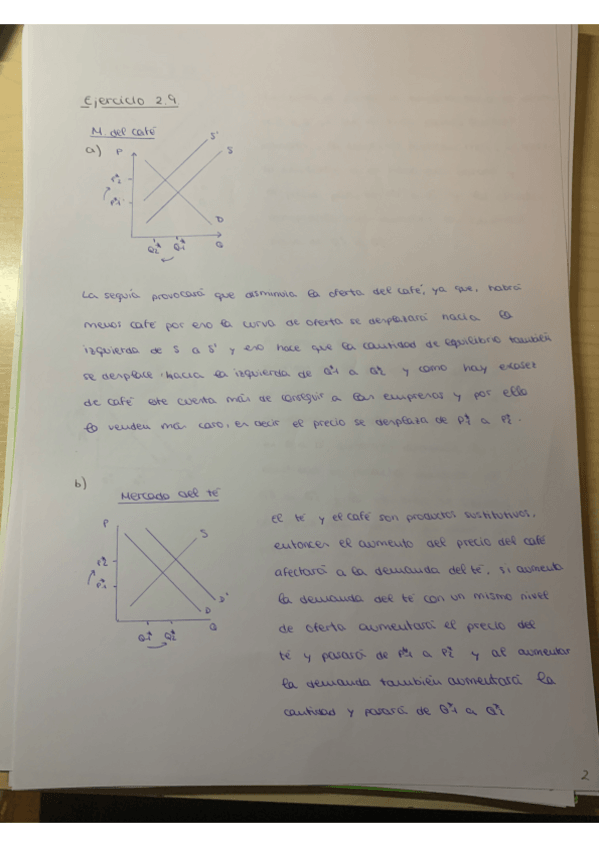 Ejercicio 2.9
M. del café
a) P
S'
S
P*2
P*1
D
Q*2 Q*1 Q
La sequía provocará que disminuia la oferta del café, ya que, habrá
menos café por eso la curva de oferta se desplazará hacia la
izquierda de S a S' y eso hace que la cantidad de equilibrio también
se desplace hacia la izquierda de Q*1 a Q*2 y como hay escasez
de café este cuesta más de conseguir a las empresas y por ello
lo venden más caro, es decir el precio se desplaza de P*1 a P*2.
b)
Mercado del té
P
S
P*2
P*1
D D'
Q*1 Q*2 Q
el té y el café son productos sustitutivos,
entonces el aumento del precio del café
afectará a la demanda del té, si aumenta
la demanda del té con un mismo nivel
de oferta aumentará el precio del
té y pasará de P*1 a P*2 y al aumentar
la demanda también aumentará la
cantidad y pasará de Q*1 a Q*2
2